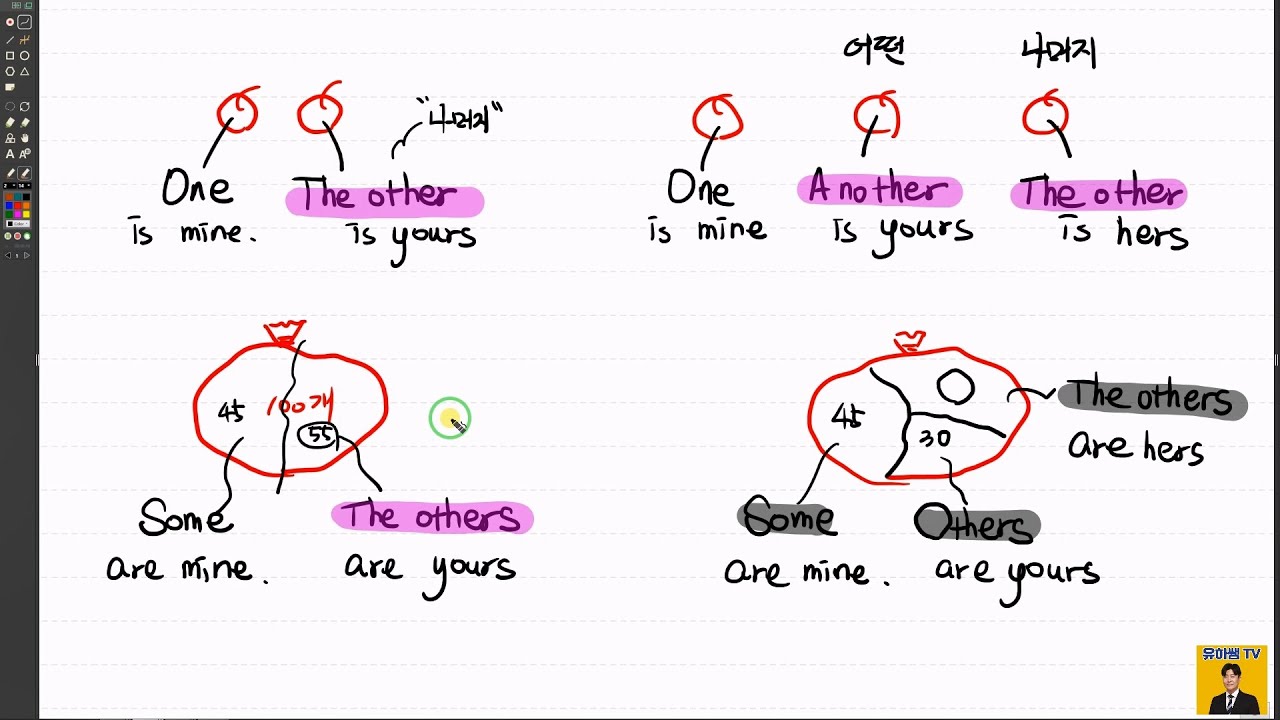 "나머지"
One The other
is mine. is yours
어떤 나머지
One Another The other
is mine is yours is hers
45 100개
55
Some The others
are mine. are yours
45 30
The others
are hers
Some Others
are mine. are yours
유하쌤 TV